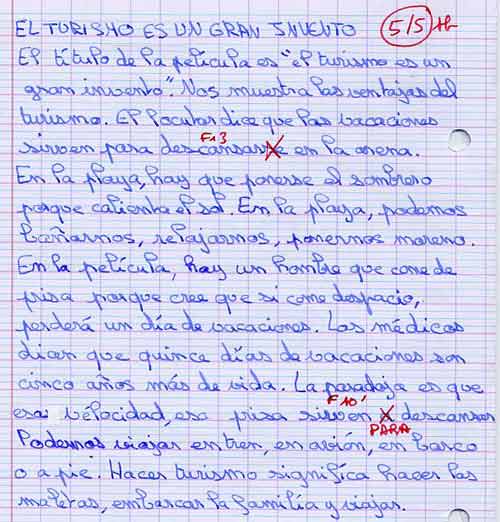 EL TURISMO ES UN GRAN INVENTO
5/5 tb
El título de la película es "el turismo es un
gran invento". Nos muestra las ventajas del
turismo. El locutor dice que las vacaciones
F13
sirven para descansarse en la arena.
En la playa, hay que ponerse el sombrero
porque calienta el sol. En la playa, podemos
bañarnos, relajarnos, ponernos moreno.
En la película, hay un hombre que come de
prisa porque cree que si come despacio,
perderá un día de vacaciones. Los médicos
dicen que quince días de vacaciones son
cinco años más de vida. La paradoja es que
F10'
esa vélocidad, esa prisa sirven descansar
PARA
Podemos viajar en tren, en avión, en barco
o a pie. Hacer turismo significa hacer las
maletas, embarcar la familia y viajar.